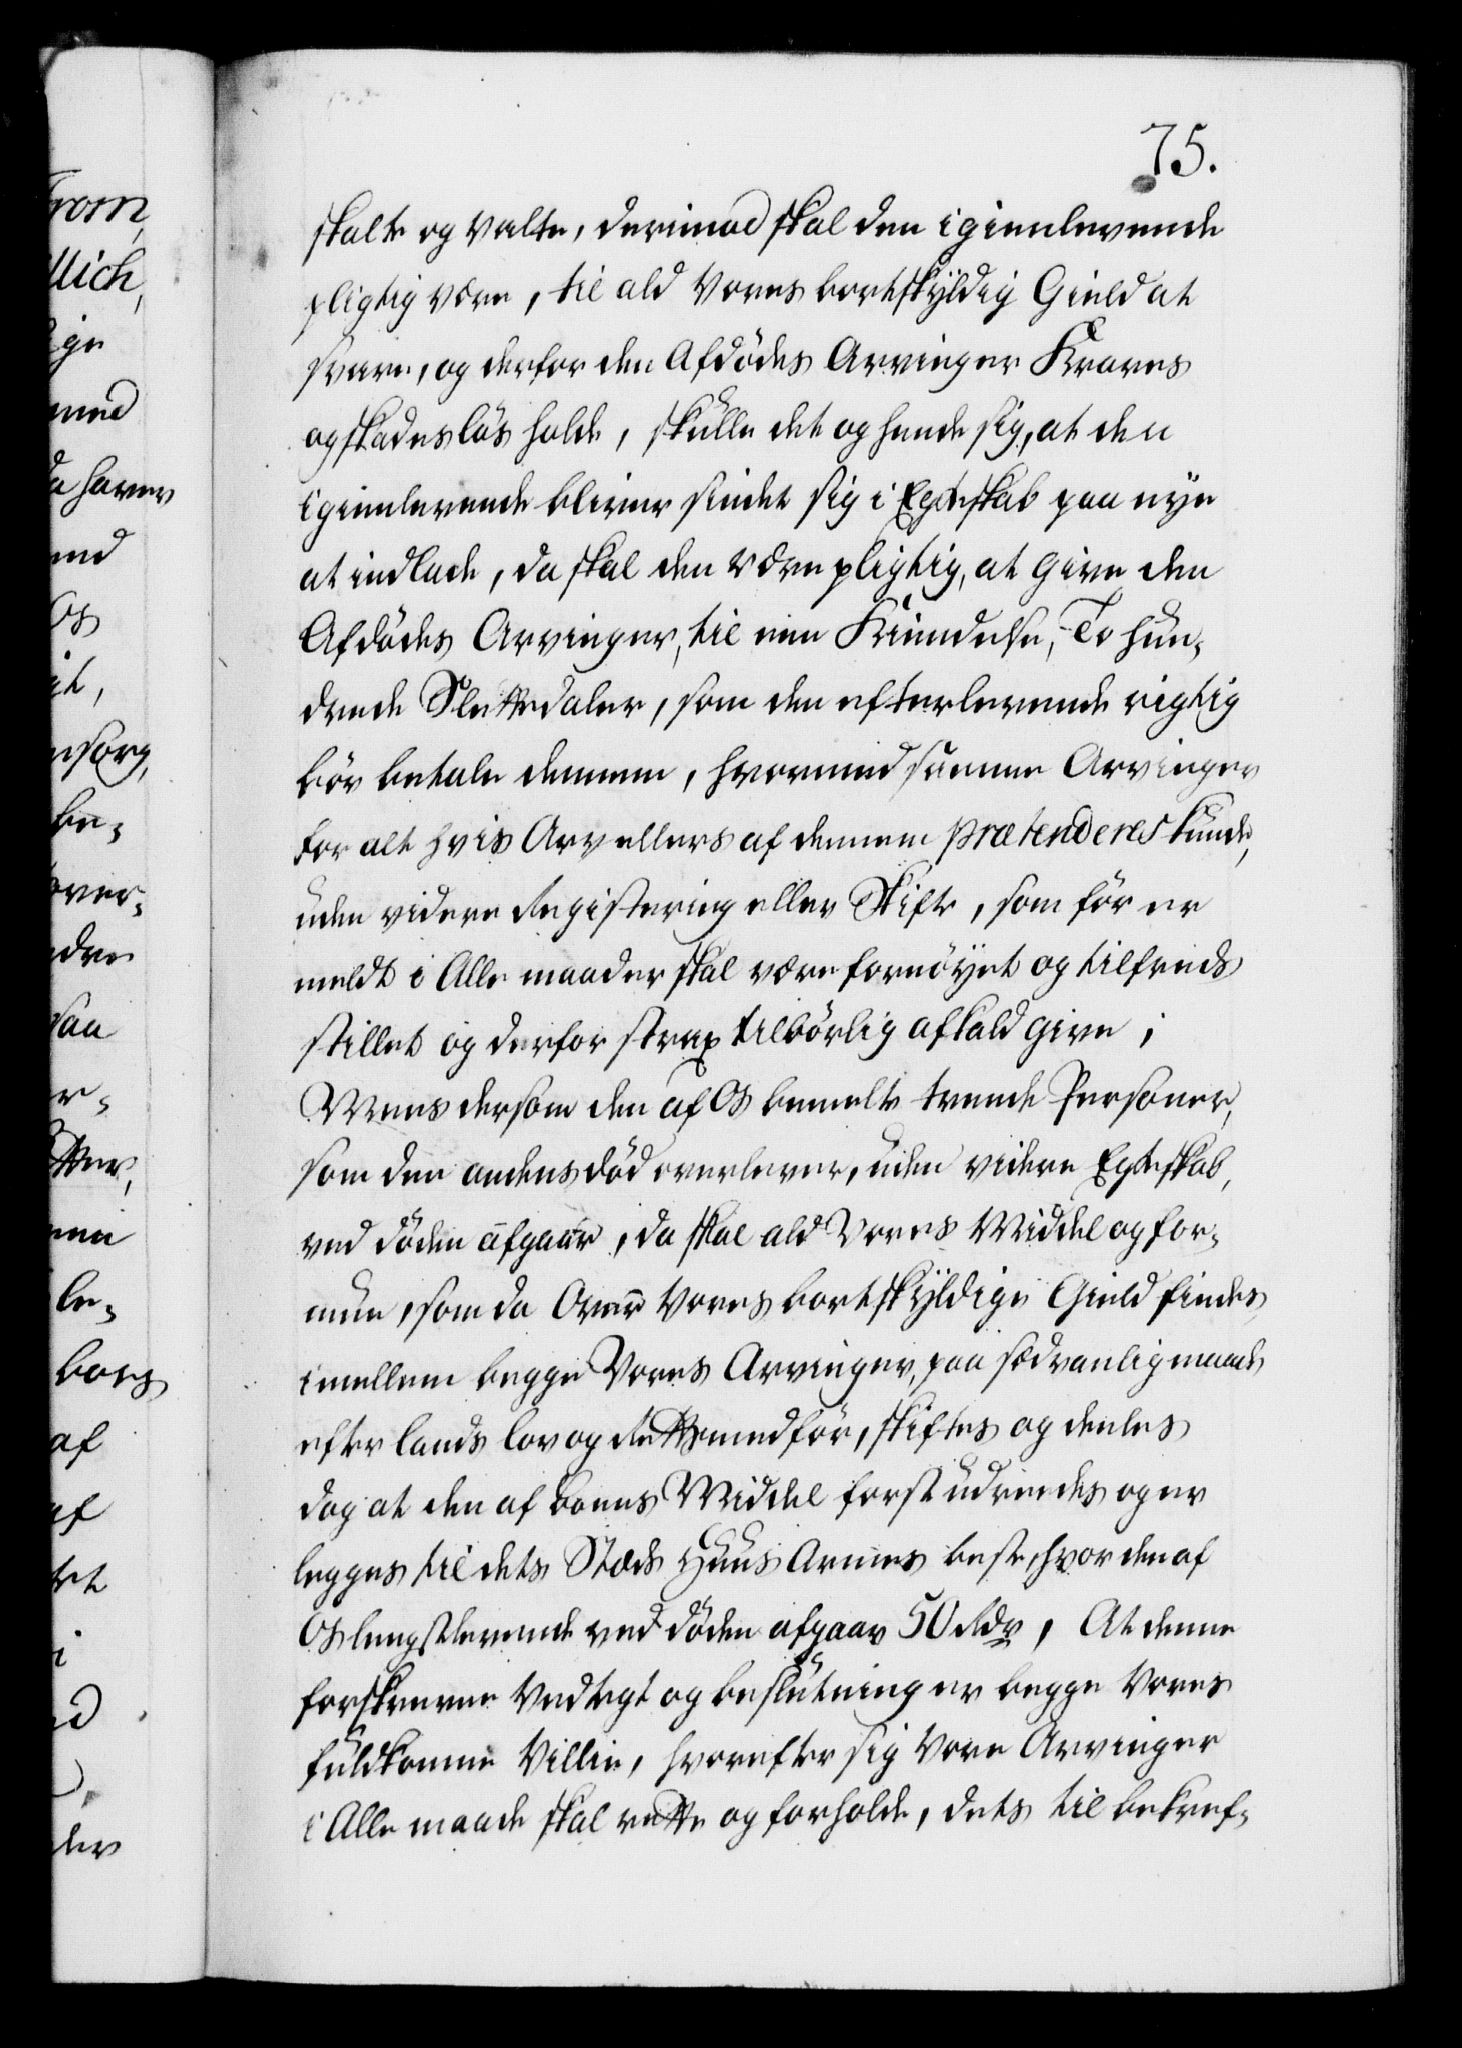 75.
skalte og valte, derimod skal den igienlevende
pligtig være, til ald Vores bortskÿldig Gield at
svare, og derfor den Afdödes Arvinger Kraves
og skadeslös holde, skulle det og hende sig, at den
igienlevende bliver sindet sig i Egteskab paa nÿe
at indlade, da skal den være pligtig, at give den
Afdödes Arvinger, til een Kiendelse, To hun-
drede Slettedaler, som den efterlevende rigtig
bör betale dennem, hvormed samme Arvinger
for alt hvis Arv ellers af dennem prætenderes kunde,
uden videre Registering eller Skifte, som för er
meldt i Alle maader skal være fornöÿet og tilfreds
stillet og derfor strax tilbörlig afkald give;
Mens dersom den af Os bemelte tvende Personer,
som den andens död overlever, uden videre Egteskab,
ved döden afgaar, da skal ald Vores Middel og for-
mue, som da Over Vores bortskÿldige Gield findes,
imellem begge Vores Arvinger, paa sædvanlig maade
efter lands lov og Rettes medför, skiftes og deeles
dog at den af boens Middel forst udreedes og er
legges til dets Stæds Huus Armes beste, hvor den af
Os lengstlevende ved döden afgaar 50 Rdr, At denne
forskrevne Vedtegt og beslutning er begge Vores
fuldkomne Villie, hvorefter sig Vore Arvinger
i Alle maade skal rette og forholde, dets til bekref-